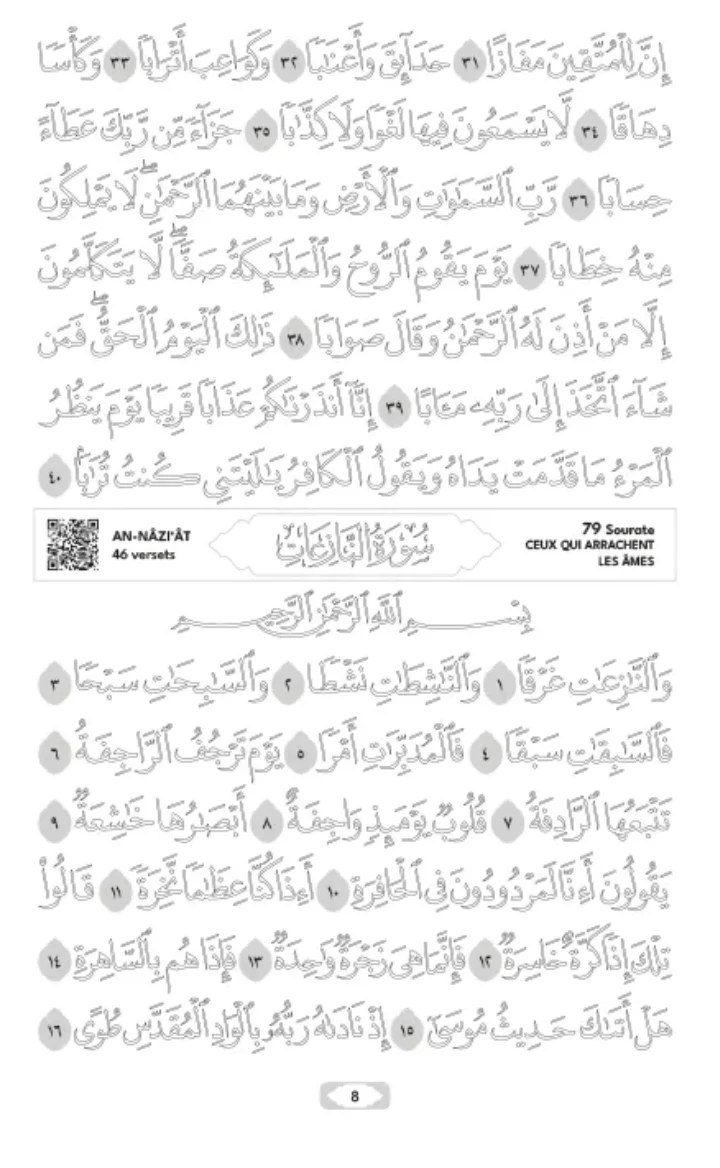 إِنَّ لِلْمُتَّقِينَ مَفَازًا ٣١ حَدَآئِقَ وَأَعْنَٰبًا ٣٢ وَكَوَاعِبَ أَتْرَابًا ٣٣ وَكَأْسًا
دِهَاقًا ٣٤ لَّا يَسْمَعُونَ فِيهَا لَغْوًا وَلَا كِذَّٰبًا ٣٥ جَزَآءً مِّن رَّبِّكَ عَطَآءً
حِسَابًا ٣٦ رَّبِّ ٱلسَّمَٰوَٰتِ وَٱلْأَرْضِ وَمَا بَيْنَهُمَا ٱلرَّحْمَٰنِۖ لَا يَمْلِكُونَ
مِنْهُ خِطَابًا ٣٧ يَوْمَ يَقُومُ ٱلرُّوحُ وَٱلْمَلَٰٓئِكَةُ صَفًّاۖ لَّا يَتَكَلَّمُونَ
إِلَّا مَنْ أَذِنَ لَهُ ٱلرَّحْمَٰنُ وَقَالَ صَوَابًا ٣٨ ذَٰلِكَ ٱلْيَوْمُ ٱلْحَقُّۖ فَمَن
شَآءَ ٱتَّخَذَ إِلَىٰ رَبِّهِۦ مَـَٔابًا ٣٩ إِنَّآ أَنذَرْنَٰكُمْ عَذَابًا قَرِيبًا يَوْمَ يَنظُرُ
ٱلْمَرْءُ مَا قَدَّمَتْ يَدَاهُ وَيَقُولُ ٱلْكَافِرُ يَٰلَيْتَنِى كُنتُ تُرَٰبًۢا ٤٠
AN-NÂZI'ÂT
46 versets
سُورَةُ النَّازِعَاتِ
79 Sourate
CEUX QUI ARRACHENT
LES ÂMES
بِسْمِ ٱللَّهِ ٱلرَّحْمَٰنِ ٱلرَّحِيمِ
وَٱلنَّٰزِعَٰتِ غَرْقًا ١ وَٱلنَّٰشِطَٰتِ نَشْطًا ٢ وَٱلسَّٰبِحَٰتِ سَبْحًا ٣
فَٱلسَّٰبِقَٰتِ سَبْقًا ٤ فَٱلْمُدَبِّرَٰتِ أَمْرًا ٥ يَوْمَ تَرْجُفُ ٱلرَّاجِفَةُ ٦
تَتْبَعُهَا ٱلرَّادِفَةُ ٧ قُلُوبٌ يَوْمَئِذٍ وَاجِفَةٌ ٨ أَبْصَٰرُهَا خَٰشِعَةٌ ٩
يَقُولُونَ أَءِنَّا لَمَرْدُودُونَ فِى ٱلْحَافِرَةِ ١٠ أَءِذَا كُنَّا عِظَٰمًا نَّخِرَةً ١١ قَالُوا۟
تِلْكَ إِذًا كَرَّةٌ خَاسِرَةٌ ١٢ فَإِنَّمَا هِىَ زَجْرَةٌ وَٰحِدَةٌ ١٣ فَإِذَا هُم بِٱلسَّاهِرَةِ ١٤
هَلْ أَتَىٰكَ حَدِيثُ مُوسَىٰٓ ١٥ إِذْ نَادَىٰهُ رَبُّهُۥ بِٱلْوَادِ ٱلْمُقَدَّسِ طُوًى ١٦
8